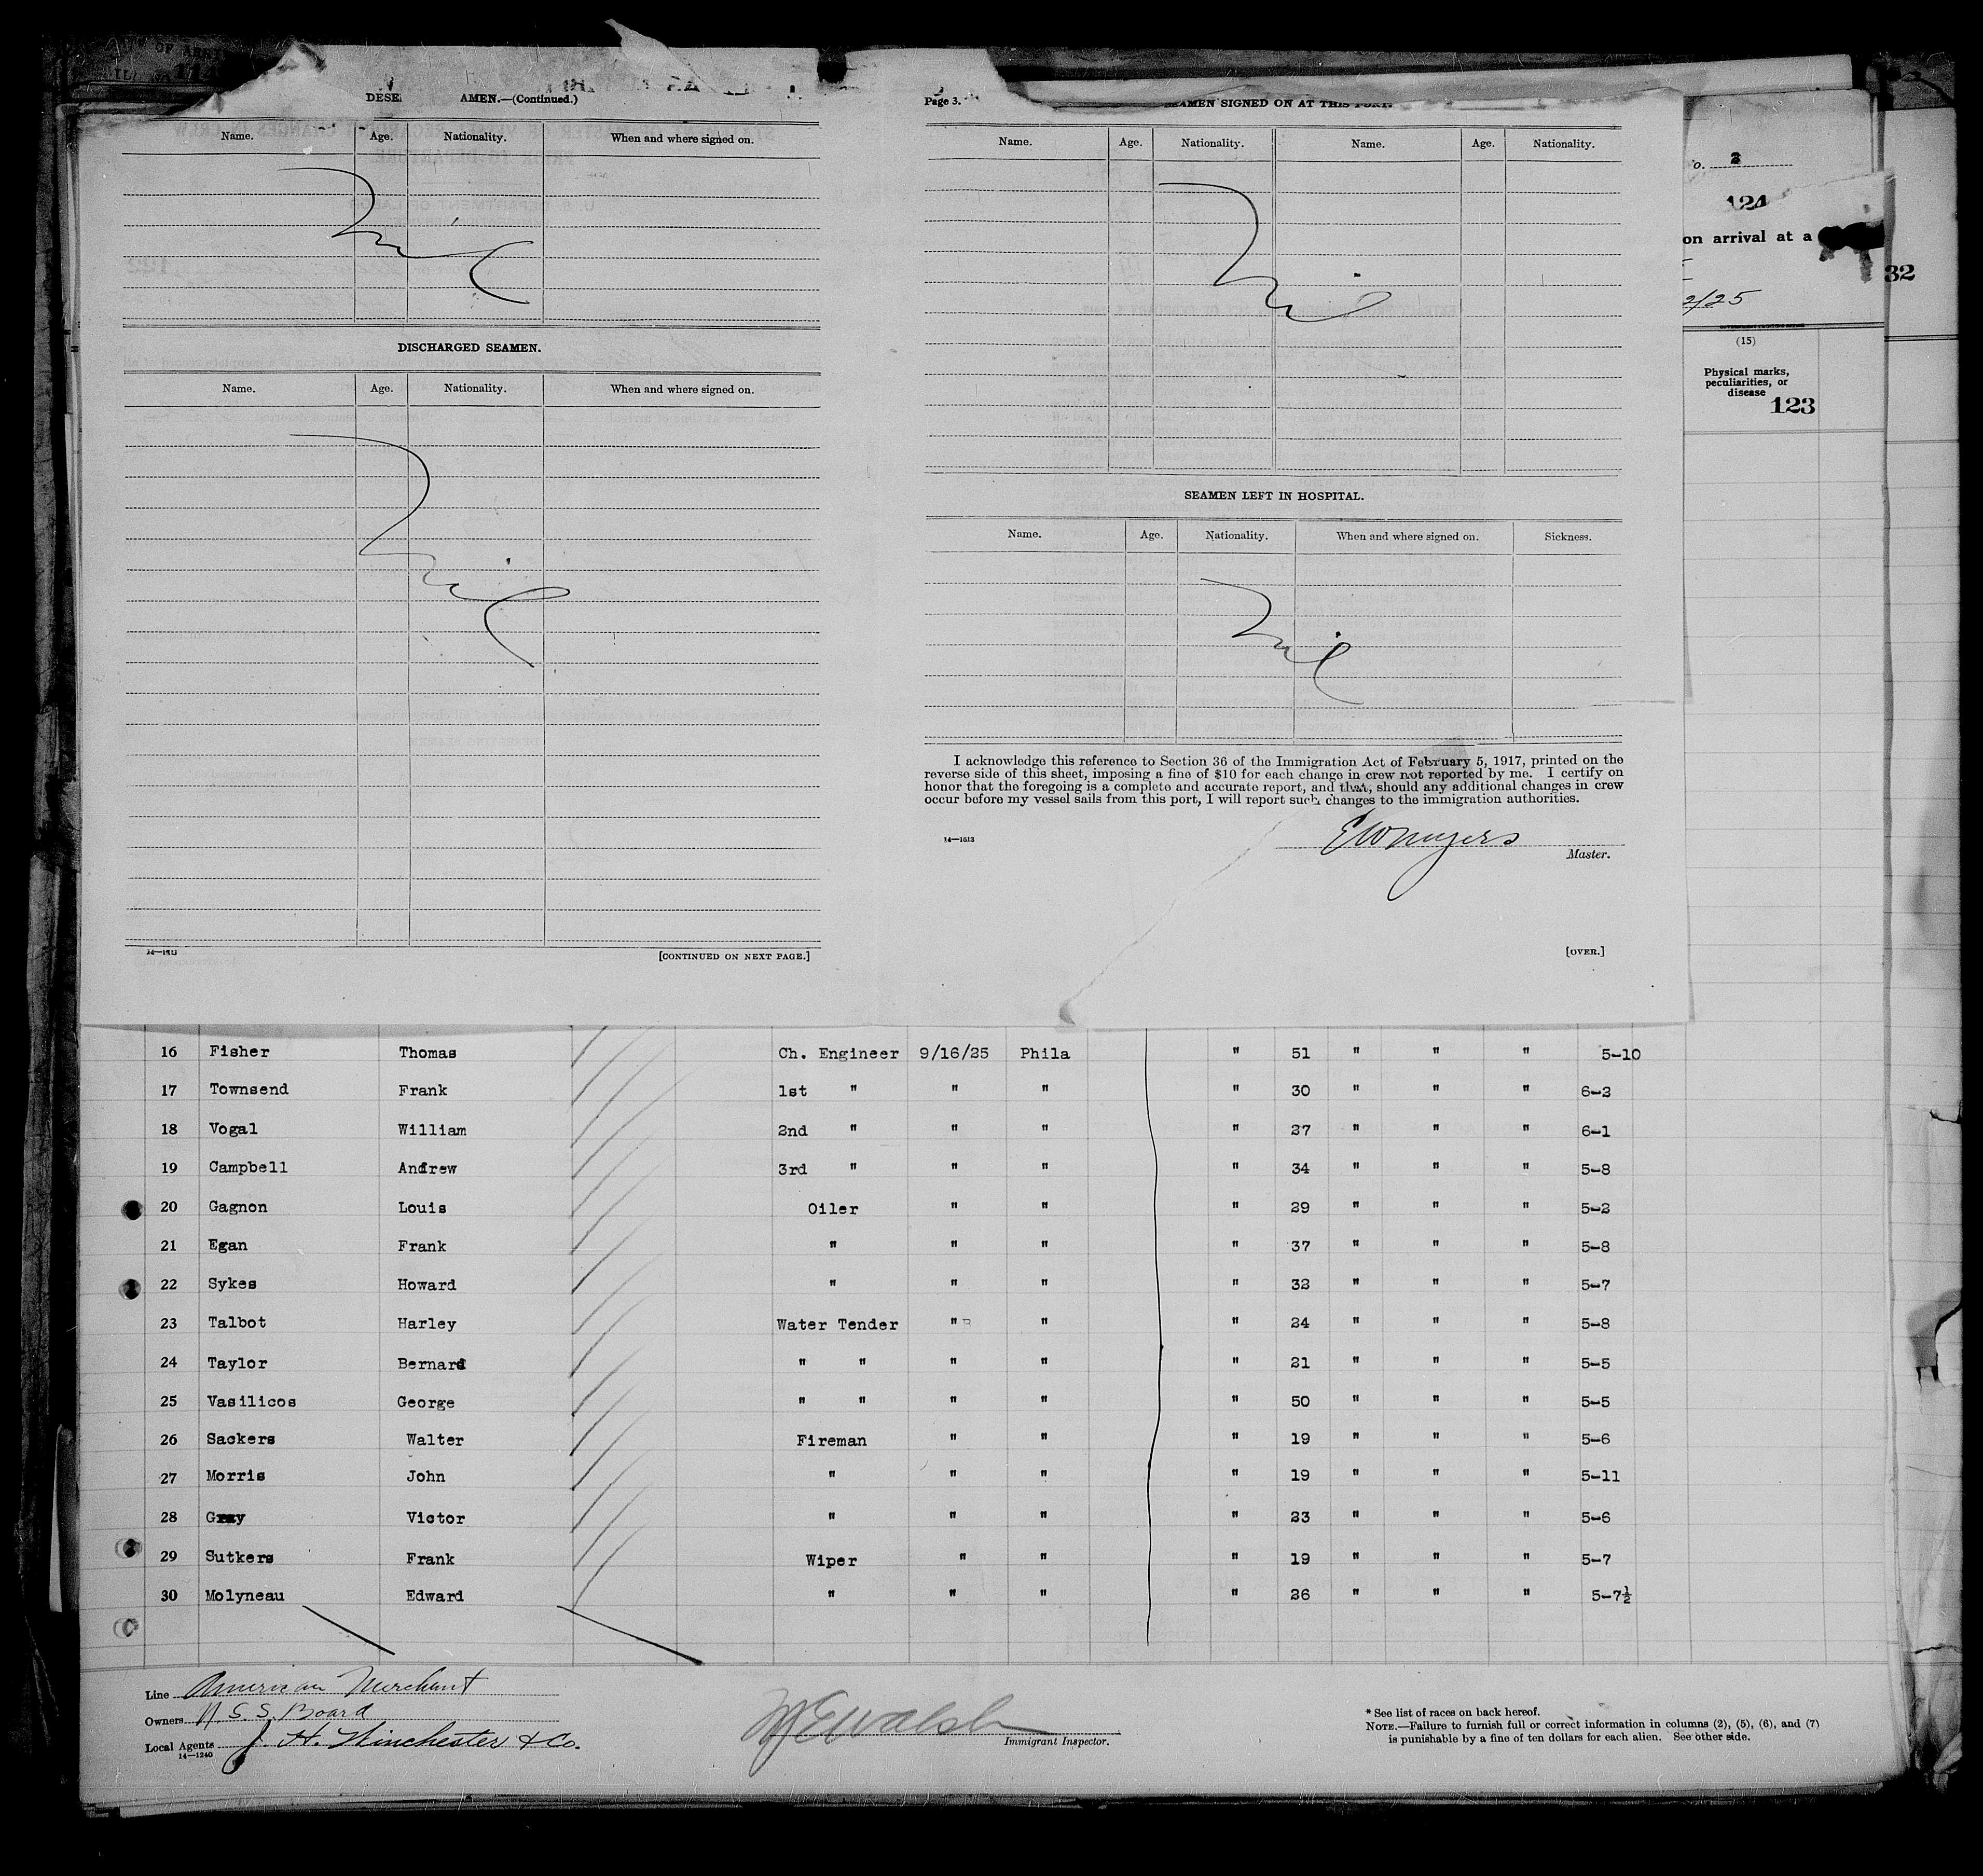 DESE AMEN.—(Continued.)
Name. Age. Nationality. When and where signed on.
Nil
DISCHARGED SEAMEN.
Name. Age. Nationality. When and where signed on.
Nil
14—1613
[CONTINUED ON NEXT PAGE.]
Page 3.
SEAMEN SIGNED ON AT THIS PORT.
Name. Age. Nationality. Name. Age. Nationality.
Nil
SEAMEN LEFT IN HOSPITAL.
Name. Age. Nationality. When and where signed on. Sickness.
Nil
I acknowledge this reference to Section 36 of the Immigration Act of February 5, 1917, printed on the
reverse side of this sheet, imposing a fine of $10 for each change in crew not reported by me. I certify on
honor that the foregoing is a complete and accurate report, and that, should any additional changes in crew
occur before my vessel sails from this port, I will report such changes to the immigration authorities.
14—1613
E W Myers
Master.
[OVER.]
o. 3
124
on arrival at a
2/25
32
(15)
Physical marks,
peculiarities, or
disease
123
16 Fisher Thomas Ch. Engineer 9/16/25 Phila " 51 " " " 5-10
17 Townsend Frank 1st " " " " 30 " " " 6-2
18 Vogal William 2nd " " " " 27 " " " 6-1
19 Campbell Andrew 3rd " " " " 34 " " " 5-8
20 Gagnon Louis Oiler " " " 29 " " " 5-2
21 Egan Frank " " " " 37 " " " 5-8
22 Sykes Howard " " " " 32 " " " 5-7
23 Talbot Harley Water Tender " " " 24 " " " 5-8
24 Taylor Bernard " " " " " 21 " " " 5-5
25 Vasilicos George " " " " " 50 " " " 5-5
26 Sackers Walter Fireman " " " 19 " " " 5-6
27 Morris John " " " " 19 " " " 5-11
28 Gray Victor " " " " 23 " " " 5-6
29 Sutkers Frank Wiper " " " 19 " " " 5-7
30 Molyneau Edward " " " " 26 " " " 5-7½
Line American Merchant
Owners U. S. S. Board
Local Agents J. H. Winchester & Co.
14—1240
Walsh
Immigrant Inspector.
* See list of races on back hereof.
NOTE.—Failure to furnish full or correct information in columns (2), (5), (6), and (7)
is punishable by a fine of ten dollars for each alien. See other side.